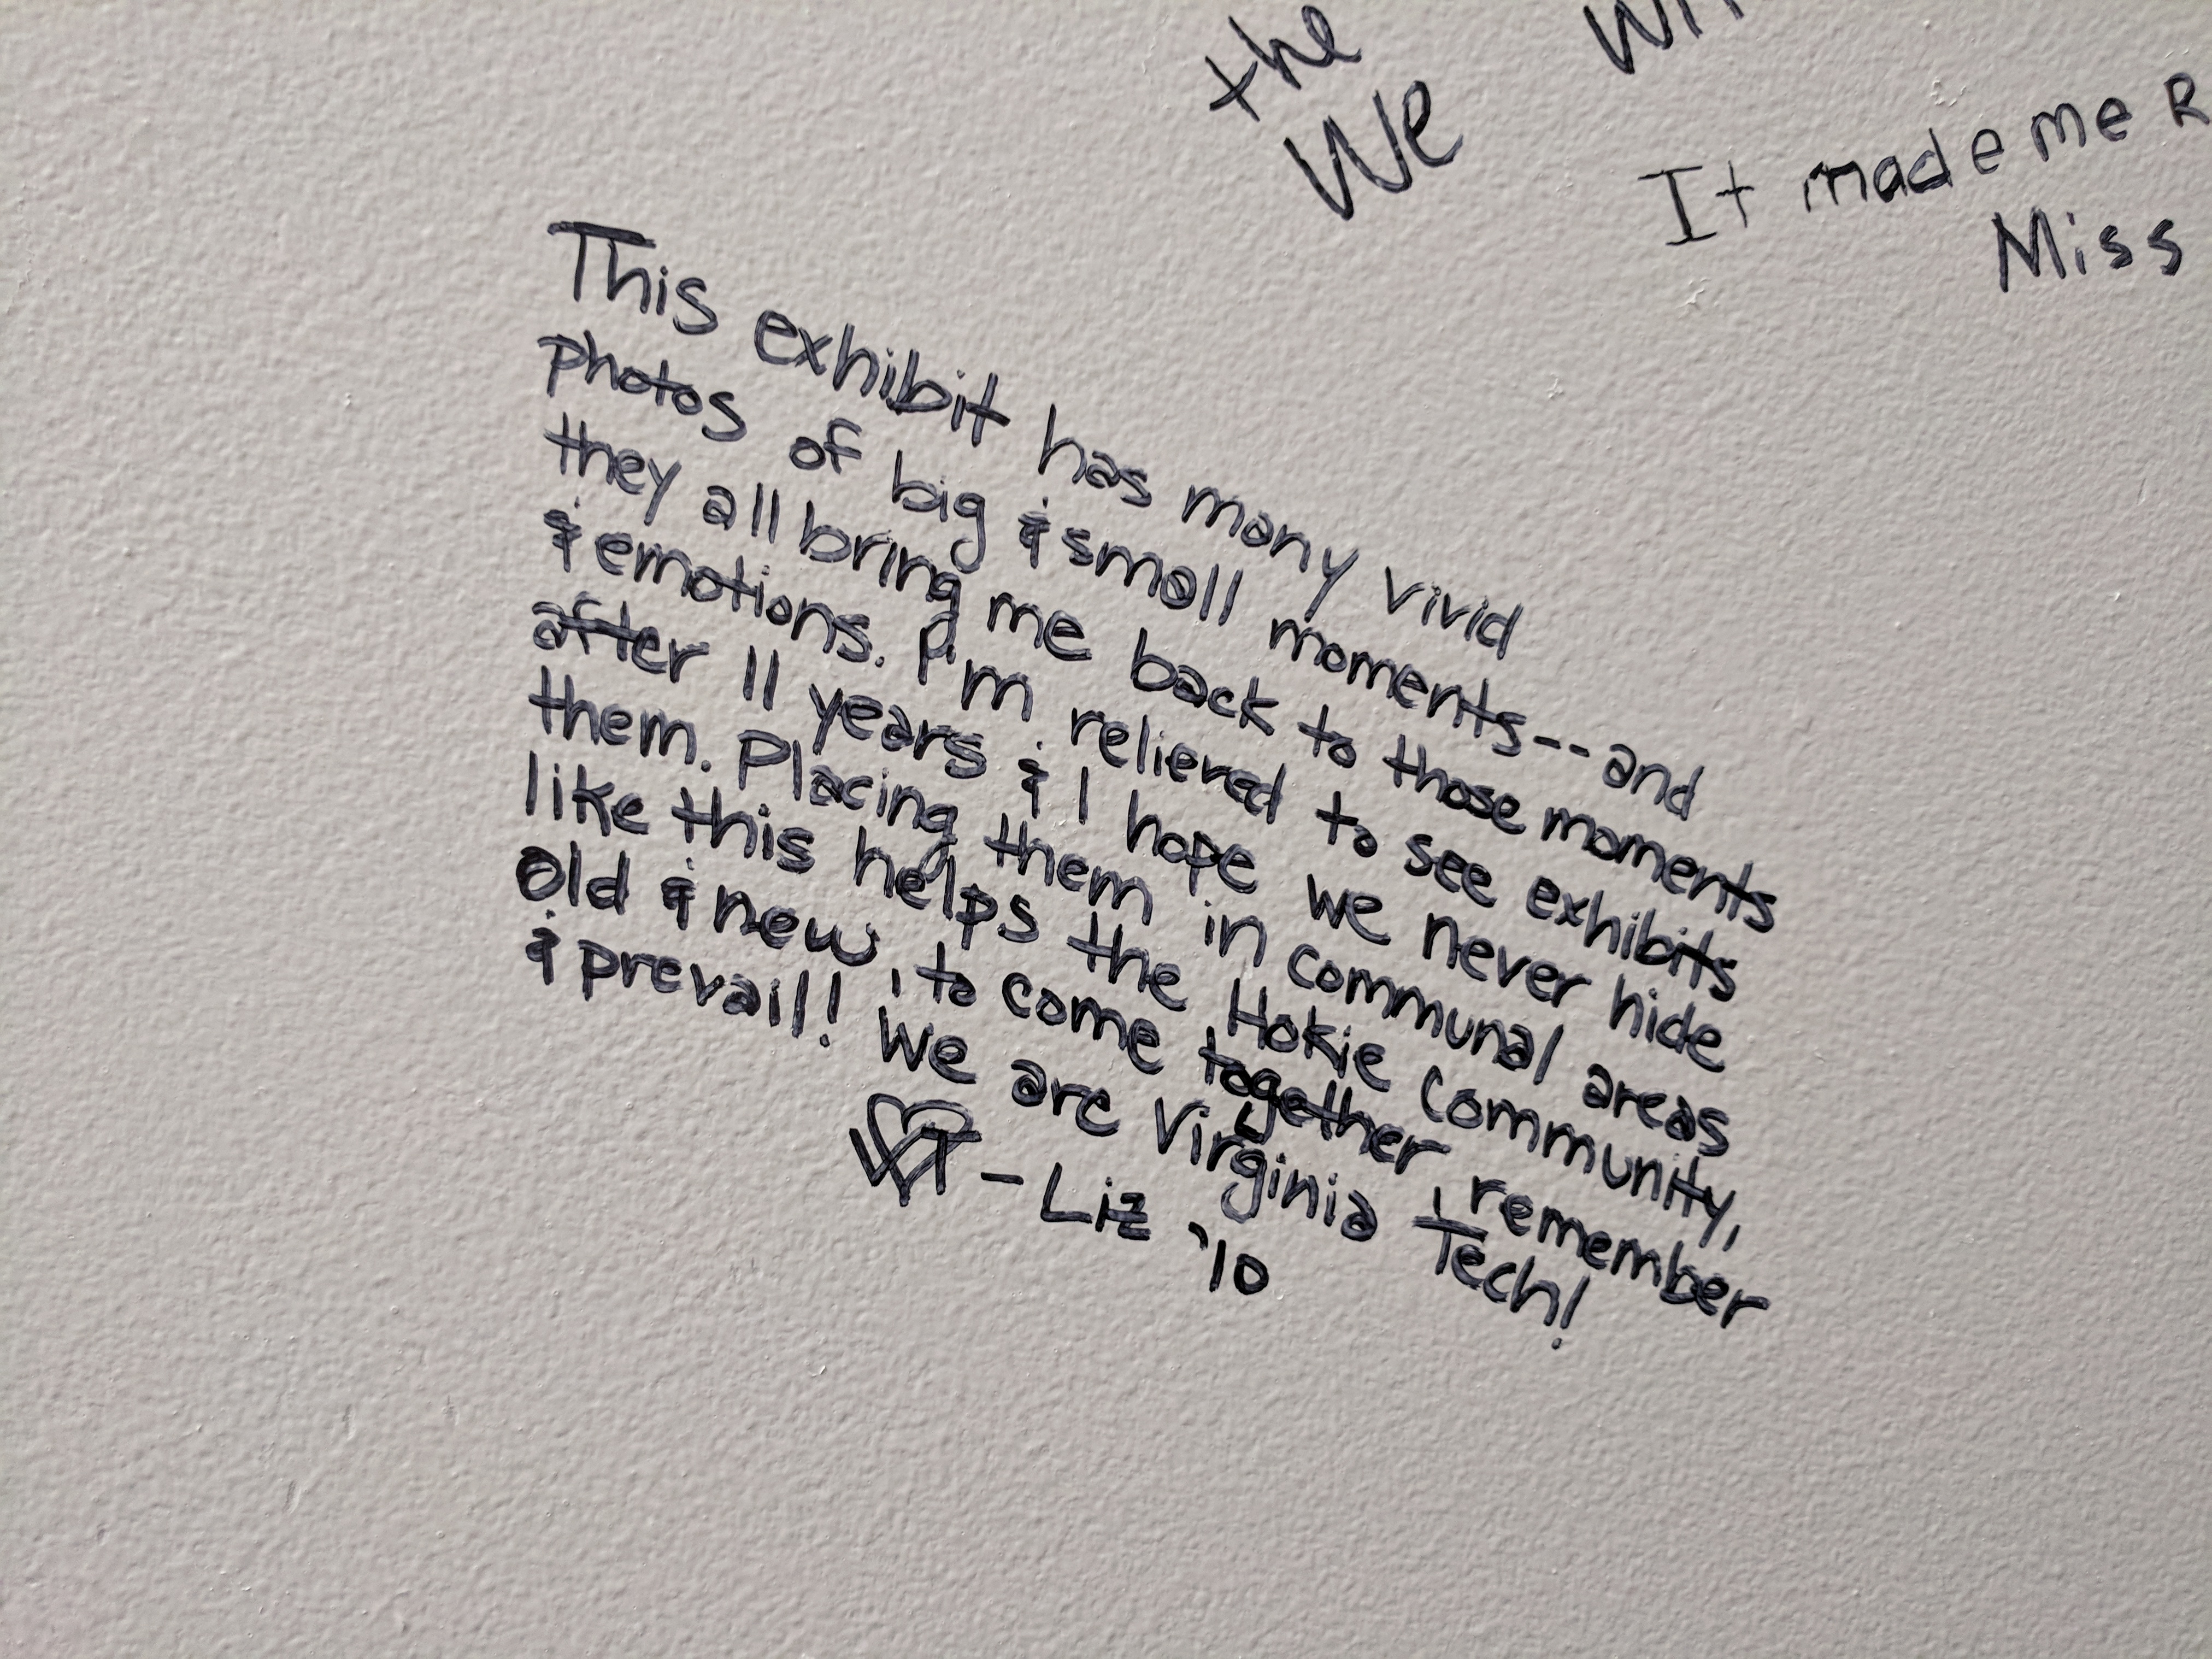 the
We
It made me R
Miss
This exhibit has many vivid
photos of big & small moments--and
they all bring me back to those moments
& emotions. I'm relieved to see exhibits
after 11 years & I hope we never hide
them. Placing them in communal areas
like this helps the Hokie Community,
old & new, to come together, remember
& prevail! We are Virginia Tech!
VT - Liz '10